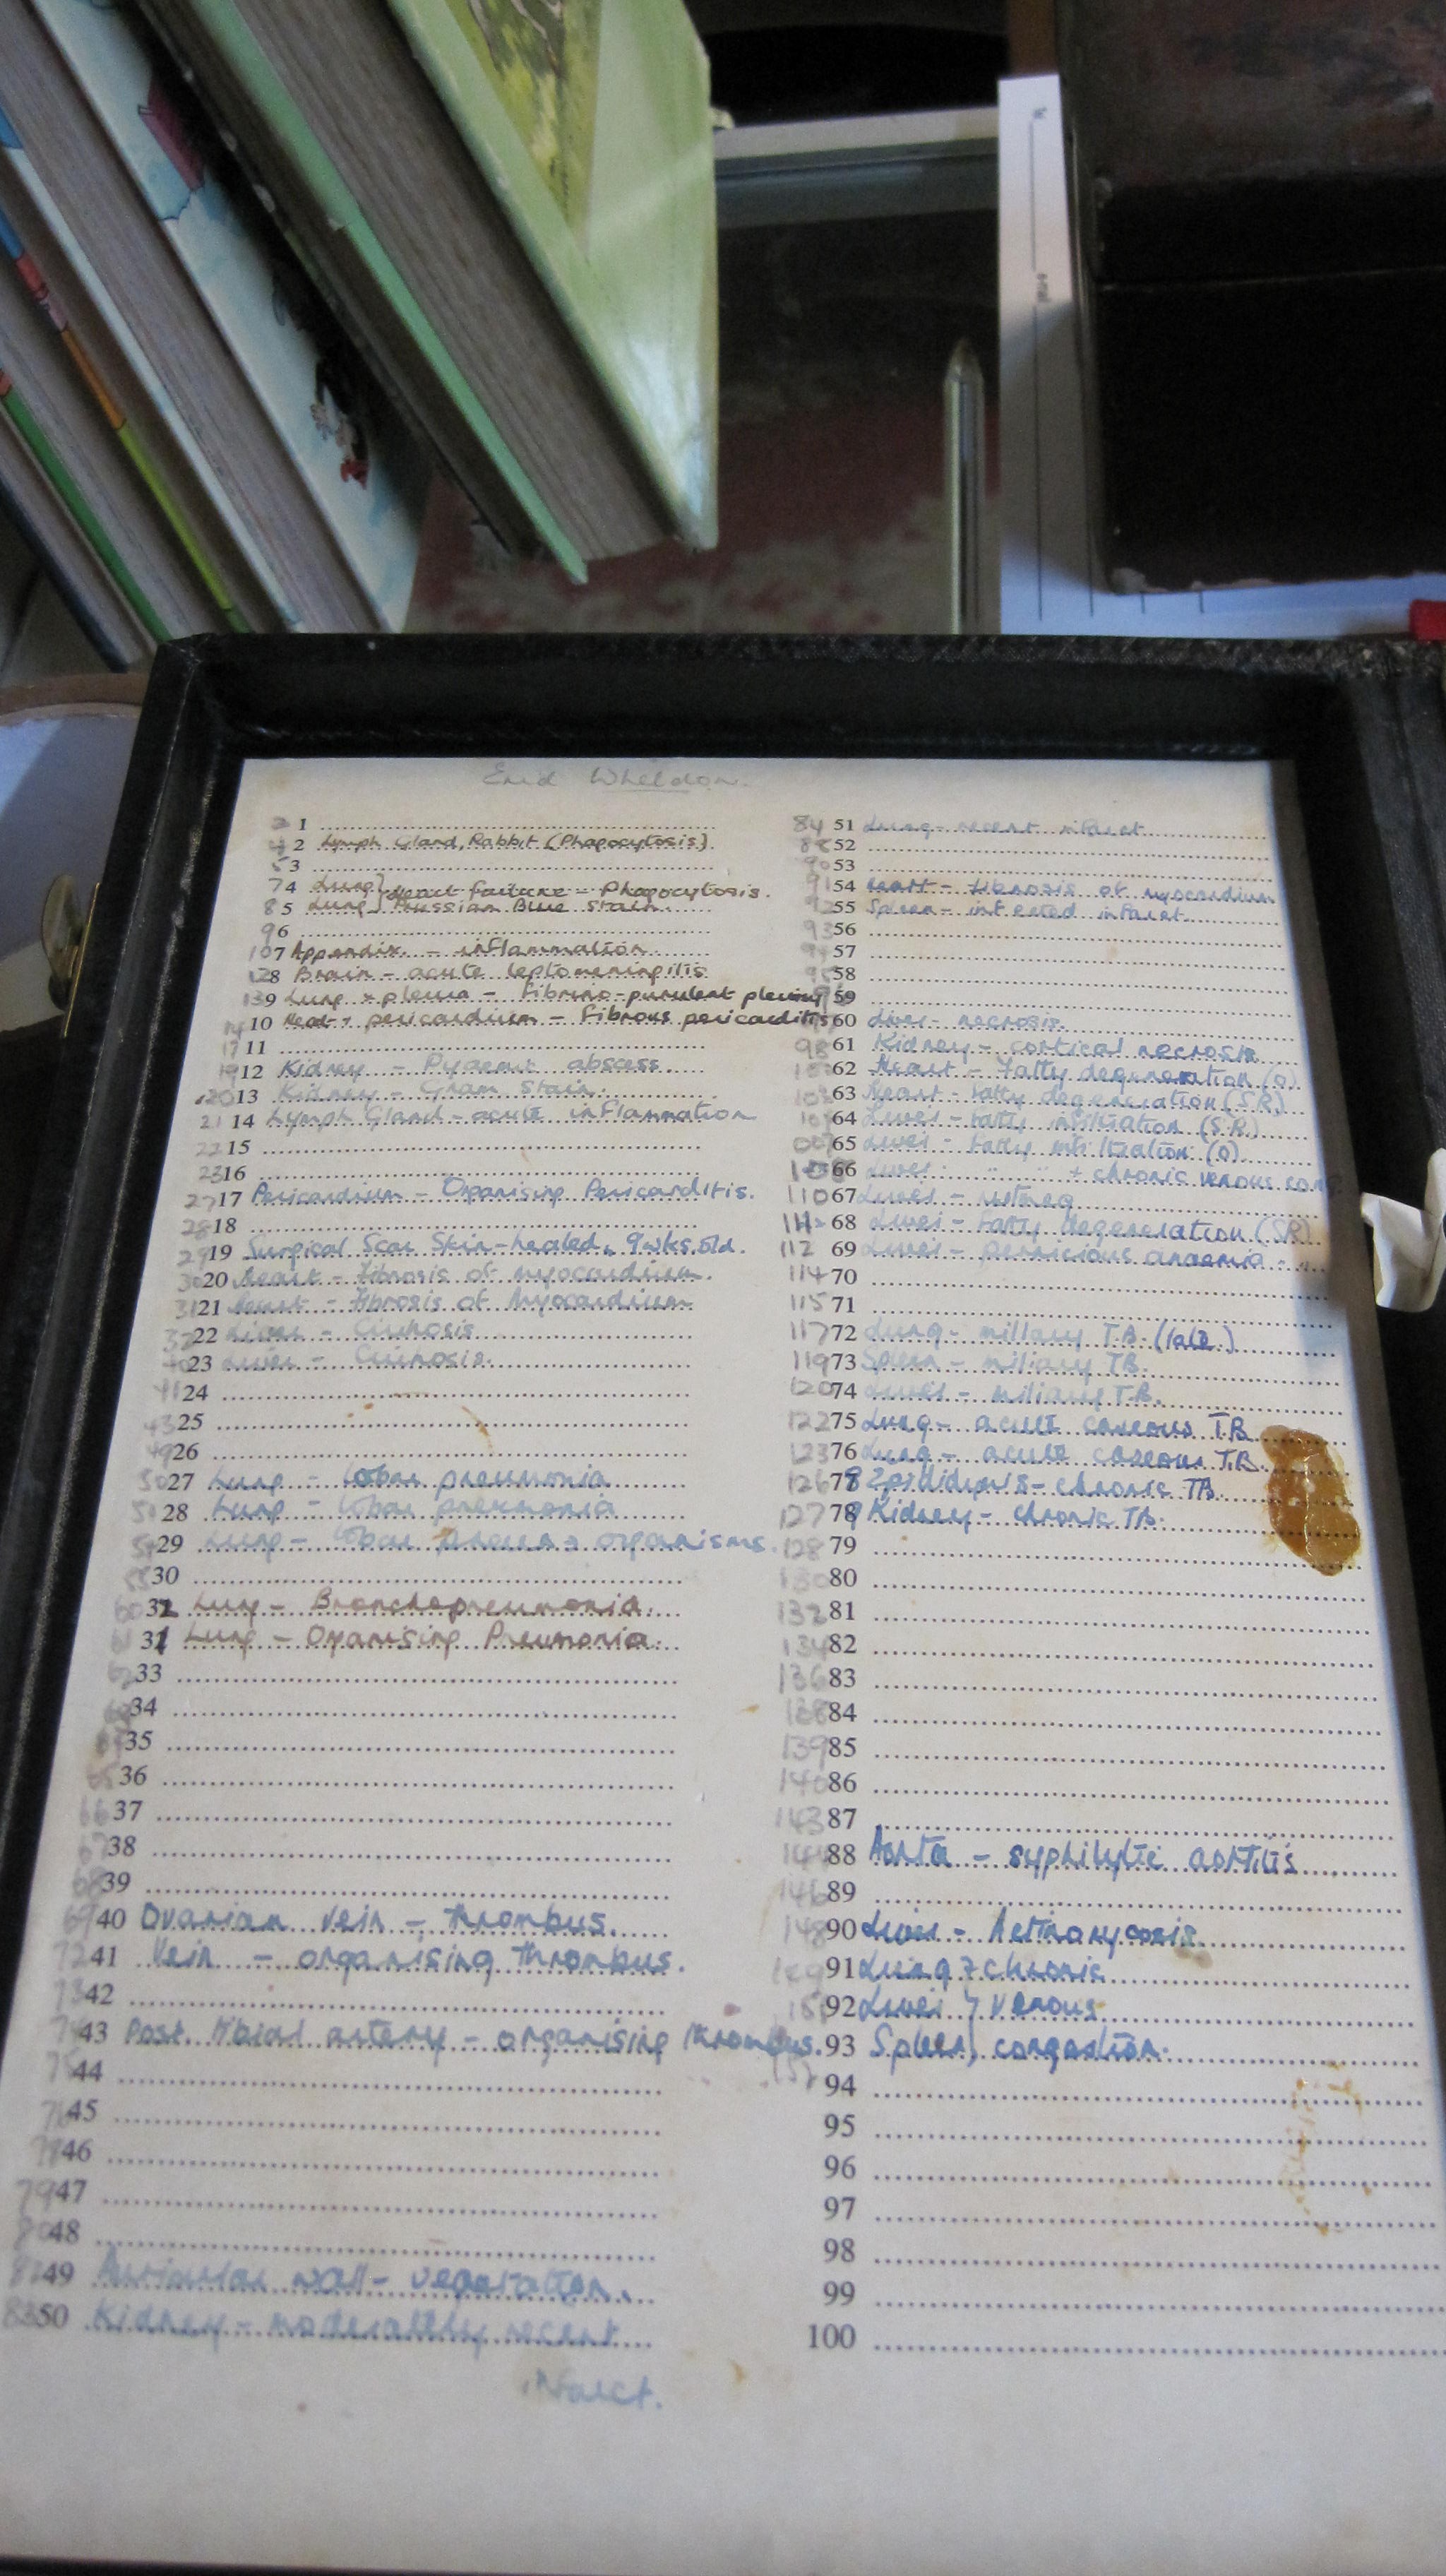 Enid Wheldon.
2 1
4 2 Lymph Gland, Rabbit (Phagocytosis)
5 3
7 4 Lung } Heart failure - Phagocytosis.
8 5 Lung } Prussian Blue stain.
9 6
10 7 Appendix - inflammation.
12 8 Brain - acute leptomeningitis
13 9 Lung + pleura - fibrino-purulent pleurisy
14 10 Heart + pericardium - Fibrous pericarditis
17 11
19 12 Kidney - Pyaemic abscess.
20 13 Kidney - Gram stain.
21 14 Lymph Gland - acute inflammation
22 15
23 16
27 17 Pericardium - Organising Pericarditis.
28 18
29 19 Surgical Scar Skin-healed, 9wks old.
30 20 Heart - fibrosis of myocardium.
31 21 Heart - fibrosis of Myocardium
22 Liver - Cirrhosis
23 Liver - Cirrhosis.
41 24
43 25
49 26
50 27 Lung - lobar pneumonia
51 28 Lung - lobar pneumonia
29 Lung - lobar organisms.
30
60 32 Lung - Bronchopneumonia.
61 31 Lung - Organising Pneumonia.
62 33
34
35
36
66 37
67 38
68 39
69 40 Ovarian vein - thrombus.
72 41 Vein - organising thrombus.
73 42
43 Post. tibial artery - organising thrombus.
75 44
76 45
46
79 47
80 48
49 Auricular wall - vegetation.
83 50 Kidney - moderately recent
infarct.
84 51 Lung - recent infarct
88 52
90 53
91 54 Heart - fibrosis of myocardium
92 55 Spleen - infected infarct
93 56
94 57
95 58
59
60 Liver - necrosis.
98 61 Kidney - cortical necrosis
62 Heart - Fatty degeneration (O)
63 Heart - fatty degeneration (S.R)
64 Liver - fatty infiltration (S.R.)
65 Liver - fatty infiltration (O).
66 Liver " " + chronic venous cong
110 67 Liver - nutmeg
111 68 Liver - fatty degeneration (SR)
112 69 Liver - pernicious anaemia - "
114 70
115 71
117 72 Lung - miliary T.B. (late)
119 73 Spleen - miliary TB.
120 74 Liver - miliary T.B.
122 75 Lung - acute caseous TB
123 76 Lung - acute caseous T.B.
126 77 Epididymis - chronic TB.
127 78 Kidney - chronic TB.
128 79
130 80
132 81
134 82
136 83
138 84
139 85
140 86
143 87
144 88 Aorta - syphilytic aortitis
146 89
148 90 Liver - Actinomycosis
149 91 Lung } chronic
92 Liver } venous
93 Spleen } congestion.
94
95
96
97
98
99
100